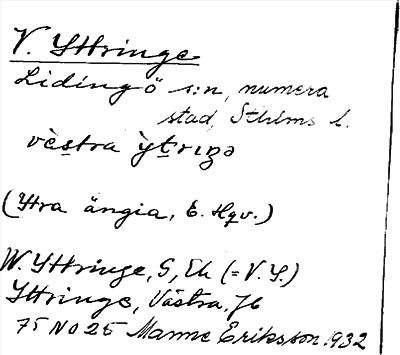 V. Yttringe
Lidingö s:n, numera
stad, Sthlms l.
vèstra ỳtrıŋə
(Ytra ängia, E. Hqv.)
W. Yttringe, G, Ek (= V. Y.)
Yttringe, Västra. Jb
75 NO 25 Manne Eriksson 1932